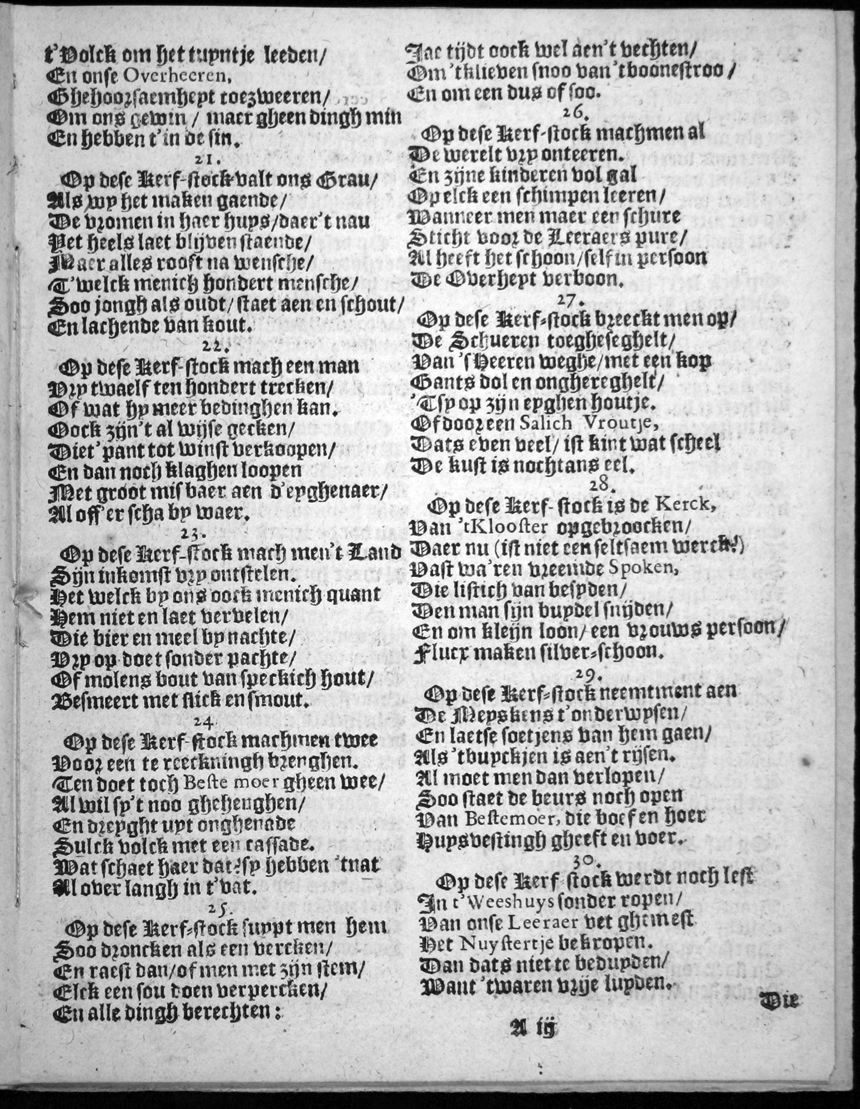 t'Volck om het tuyntje leeden/
En onse Overheeren,
Ghehoorsaemheyt toezweeren/
Om ons gewin / maer gheen dingh min
En hebben t'in de sin.
21.
Op dese Kerf-stock valt ons Grau/
Als wy het maken gaende/
De vromen in haer huys/daer't nau
Het heels laet blijven staende/
Maer alles rooft na wensche/
T'welck menich hondert mensche/
Soo jongh als oudt/ staet aen en schout/
En lachende van kout.
22.
Op dese Kerf-stock mach een man
Vry twaelf ten hondert trecken/
Of wat hy meer bedinghen kan.
Oock zijn't al wijse gecken/
Die t'pant tot winst verkoopen/
En dan noch klaghen loopen
Met groot misbaer aen d'eyghenaer/
Al off'er scha by waer.
23.
Op dese Kerf-stock mach men't Land
Sijn inkomst vry ontstelen.
Het welck by ons oock menich quant
Hem niet en laet vervelen/
Die bier en meel by nachte/
Vry op doet sonder pachte/
Of molens bout van speckich hout/
Besmeert met slick en smout.
24.
Op dese Kerf-stock machmen twee
Voor een te reeckningh brenghen.
Ten doet toch Beste moer gheen wee/
Al wil sy't noo ghehenghen/
En dreyght uyt onghenade
Sulck volck met een cassade.
Wat schaet haer dat? sy hebben 'tnat
Al over langh in t'vat.
25.
Op dese Kerf-stock suypt men hem
Soo droncken als een vercken/
En raest dan/of men met zijn stem/
Elck een sou doen verpercken/
En alle dingh berechten:
Jae tijdt oock wel aen't vechten/
Om 'tklieven snoo van 'tboonestroo /
En om een dus of soo.
26.
Op dese Kerf-stock machmen al
De werelt vry onteeren.
En zijne kinderen vol gal
Op elck een schimpen leeren/
Wanneer men maer een schure
Sticht voor de Leeraers pure/
Al heeft het schoon/self in persoon
De Overheyt verboon.
27.
Op dese Kerf-stock breeckt men op/
De Schueren toegheseghelt/
Van 's Heeren weghe/met een kop
Gants dol en onghereghelt/
'Tsy op zijn eyghen houtje.
Of door een Salich Vroutje,
Dats even veel/ ist kint wat scheel
De kust is nochtans eel.
28.
Op dese Kerf-stock is de Kerck,
Van 'tKlooster opgebroocken/
Daer nu (ist niet een seltsaem werck!)
Vast wa'ren vreemde Spoken,
Die listich van besyden/
Den man sijn buydel snijden/
En om kleijn loon/ een vrouws persoon/
Flucx maken silver-schoon.
29.
Op dese Kerf-stock neemtment aen
De Meyskens t'onderwysen/
En laetse soetjens van hem gaen/
Als 'tbuyckjen is aen't rijsen.
Al moet men dan verlopen/
Soo staet de beurs noch open
Van Bestemoer, die boef en hoer
Huysvestingh gheeft en voer.
30.
Op dese Kerf-stock werdt noch lest
In t'Weeshuys sonder ropen/
Van onse Leeraer vet ghemest
Het Nuystertje bekropen.
Dan dats niet te beduyden/
Want 'twaren vrije luyden.
Die
A ij